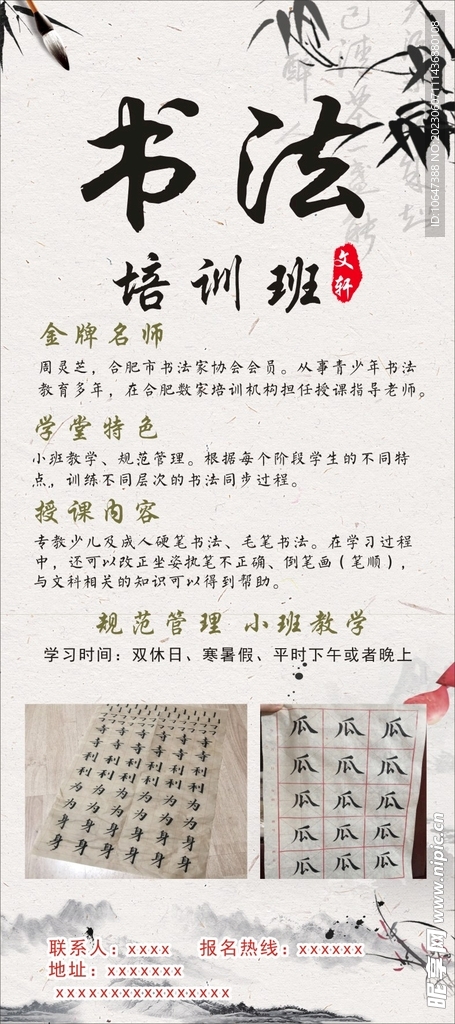 书法
培训班
文轩
金牌名师
周灵芝，合肥市书法家协会会员。从事青少年书法
教育多年，在合肥数家培训机构担任授课指导老师。
学堂特色
小班教学、规范管理。根据每个阶段学生的不同特
点，训练不同层次的书法同步过程。
授课内容
专教少儿及成人硬笔书法、毛笔书法。在学习过程
中，还可以改正坐姿执笔不正确、倒笔画（笔顺），
与文科相关的知识可以得到帮助。
规范管理 小班教学
学习时间：双休日、寒暑假、平时下午或者晚上
寺寺寺寺寺寺
利利利利利利
为为为为为为
身身身身身身
瓜瓜瓜
瓜瓜瓜
瓜瓜瓜
瓜瓜瓜
瓜瓜瓜
联系人：xxxx 报名热线：xxxxxx
地址：xxxxxxx
xxxxxxxxxxxxxxxx
昵享网 www.nipic.cn